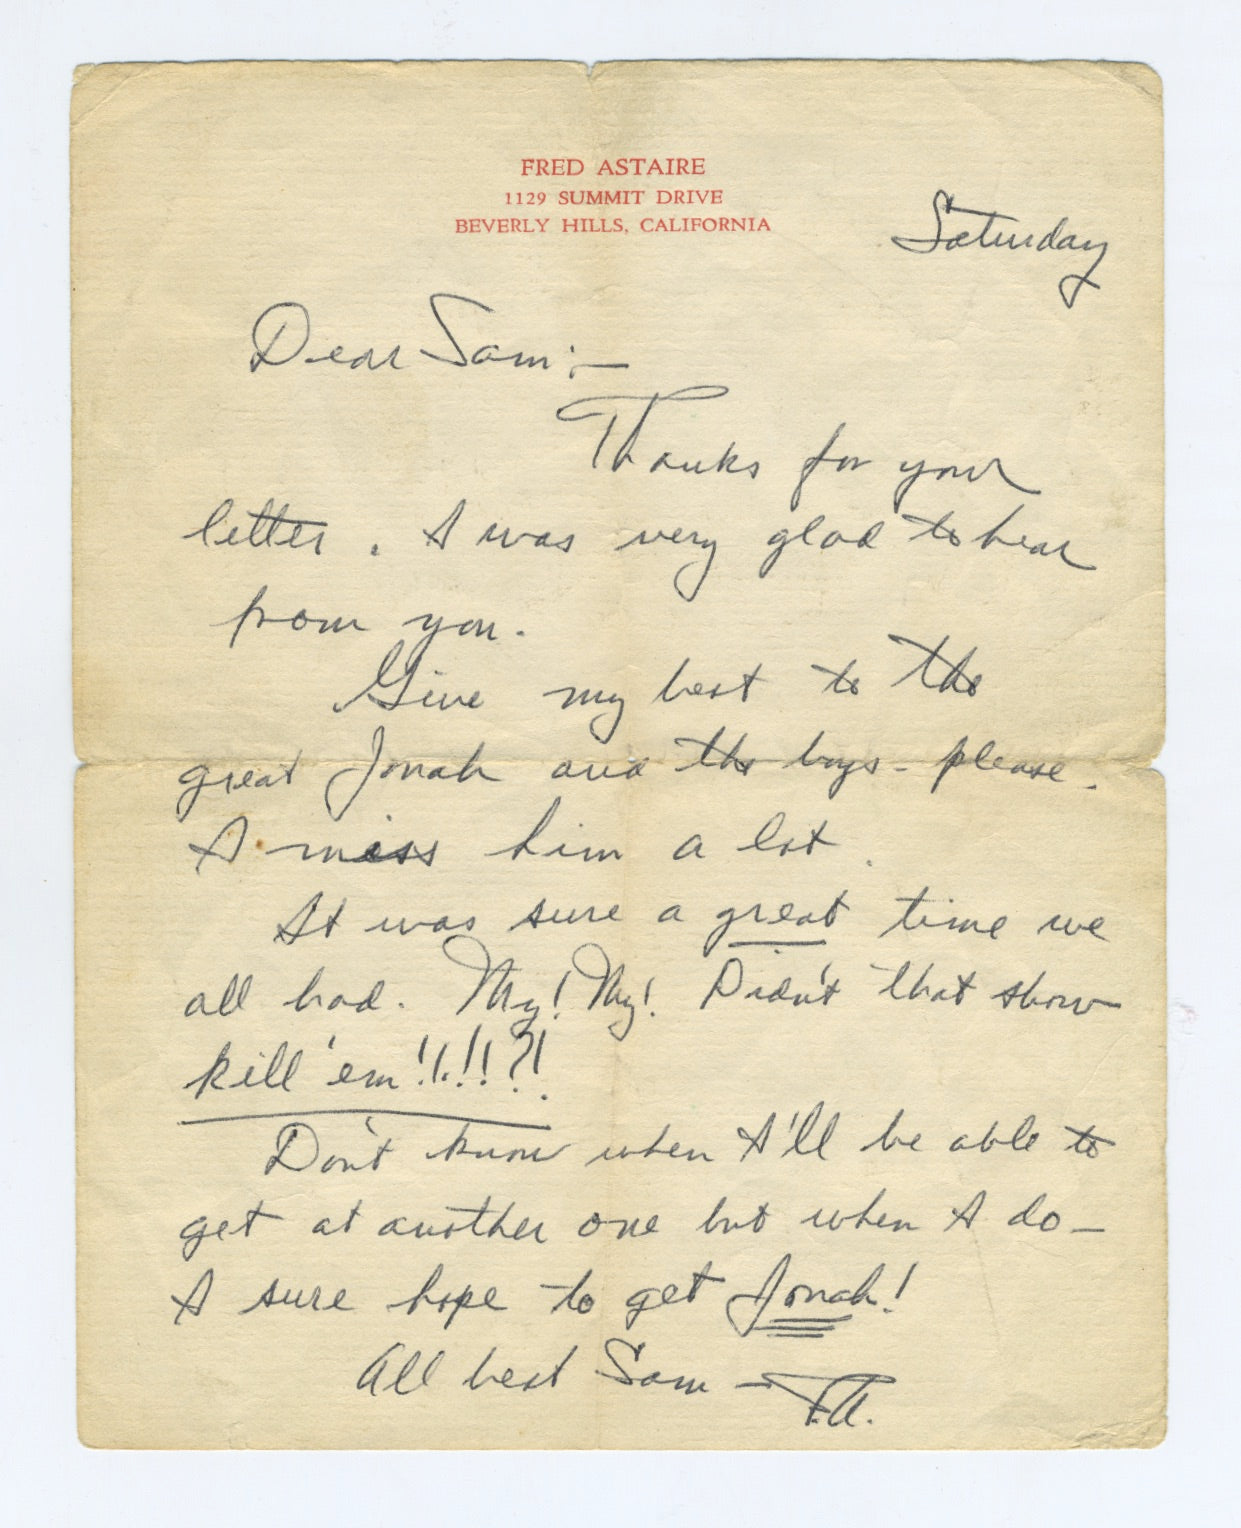 FRED ASTAIRE
1129 SUMMIT DRIVE
BEVERLY HILLS, CALIFORNIA
Saturday
Dear Sam:—
Thanks for your
letter. I was very glad to hear
from you.
Give my best to the
great Jonah and the boys - please.
I miss him a lot.
It was sure a great time we
all had. My! My! Didn't that show
kill 'em!!!!?!
Don't know when I'll be able to
get at another one but when I do —
I sure hope to get Jonah!
All best Sam — F.A.